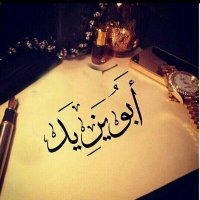 أَبُو يَزِيدَ